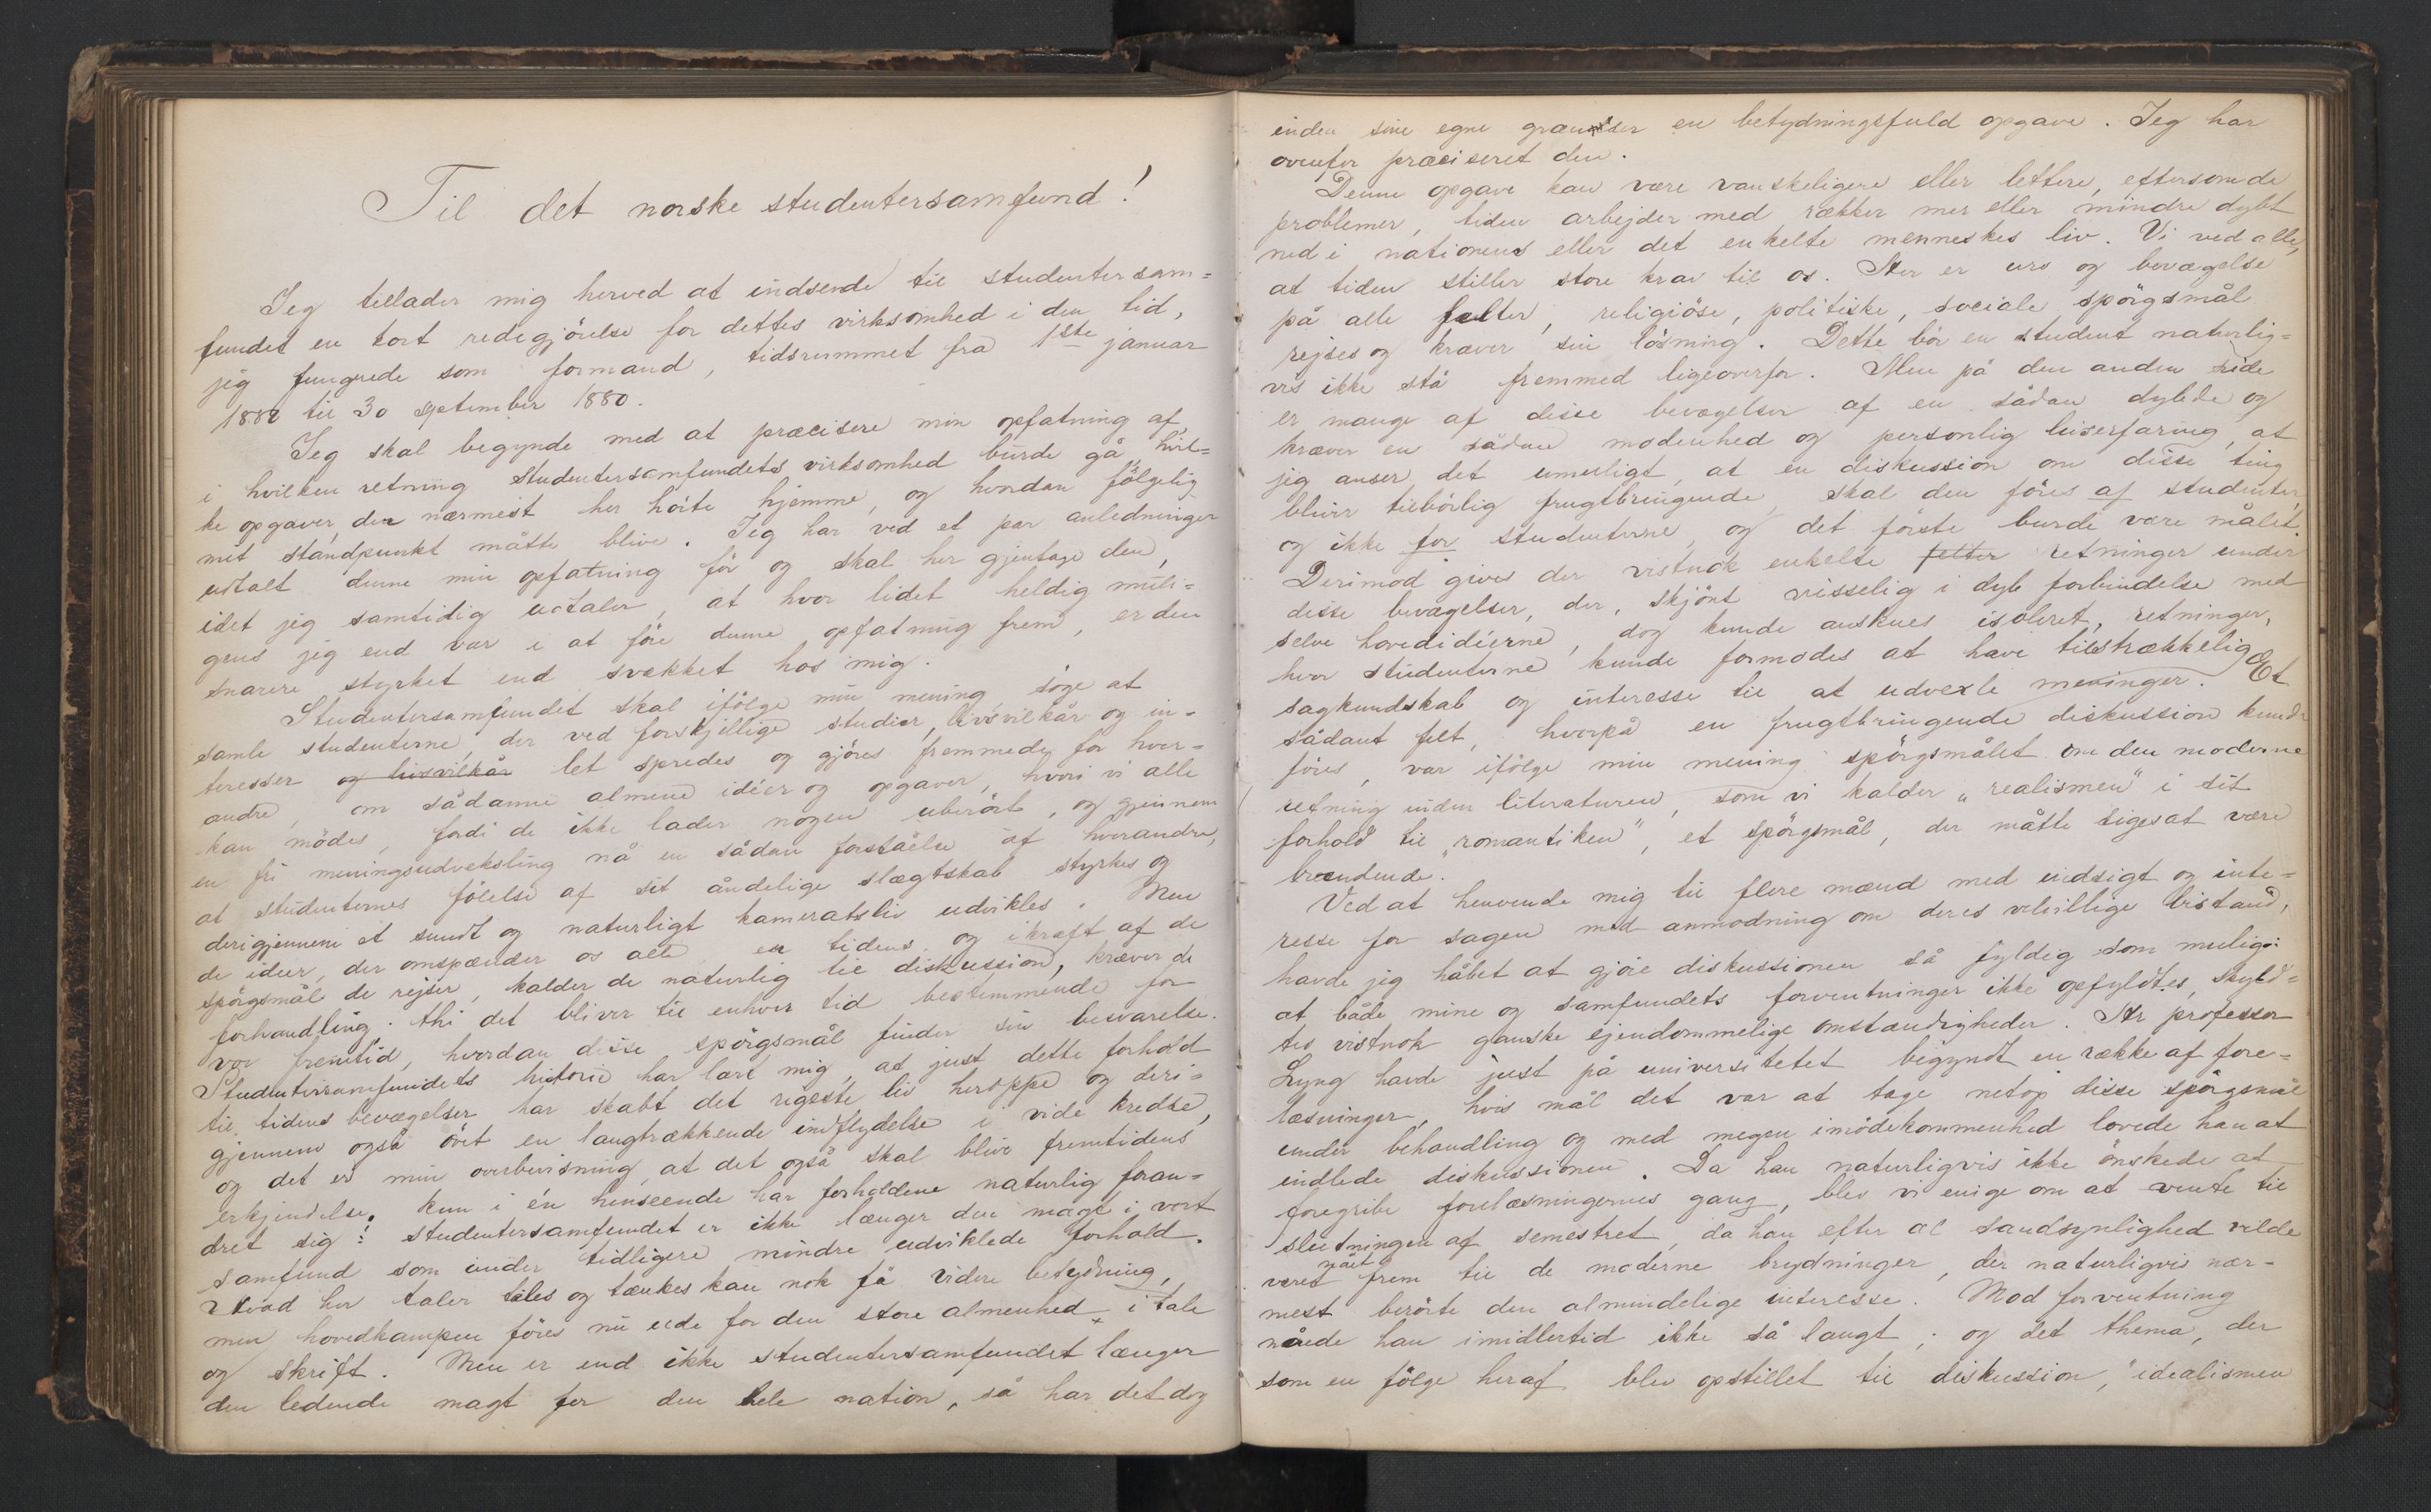 Til det norske studentersamfund!
Jeg tillader mig herved at indsende til studentersam=
fundet en kort redegjörelse for dettes virksomhed i den tid,
jeg fungerede som formand, tidsrummet fra 1ste januar
1880 til 30 september 1880.
Jeg skal begynde med at præcisere min opfatning af,
i hvilken retning studentersamfundets virksomhed burde gå, hvil=
ke opgaver, der nærmest her hörte hjemme, og hvordan fölgelig
mit standpunkt måtte blive. Jeg har ved et par anledninger
udtalt denne min opfatning för og skal her gjentage den,
idet jeg samtidig udtaler, at hvor lidet heldig muli=
gens jeg end var i at före denne opfatning frem, er den
snarere styrket end svækket hos mig.
Studentersamfundet skal ifölge min mening söge at
samle studenterne, der ved forskjellige studier, livsvilkår og in=
teresser og livsvilkår let spredes og gjöres fremmede for hver=
andre, om sådanne almene idéer og opgaver, hvori vi alle
kan mödes, fordi de ikke lader nogen uberört, og gjennem
en fri meningsudveksling nå en sådan forståelse af hverandre,
at studenternes fölelse af sit åndelige slægtskab styrkes og
derigjennem et sundt og naturligt kameratsliv udvikles. Men
de ideer, der omspænder os alle er tidens, og i kraft af de
spörgsmål de rejser, kalder de naturlig til diskussion, kræver de
forhandling. thi det bliver til enhver tid bestemmende for
vor fremtid, hvordan disse spörgsmål finder sin besvarelse.
Studentersamfundets historie har lært mig, at just dette forhold
til tidens bevægelser har skabt det rigeste liv heroppe og deri=
gjennem også övet en langtrækkende indflydelse i vide kredse,
og det er min overbevisning, at det også skal blive fremtidens
erkjendelse. kun i én henseende har forholdene naturlig foran=
dret sig: studentersamfundet er ikke længer den magt i vort
samfund som under tidligere mindre udviklede forhold.
Hvad her taler tales og tænkes kan nok få videre betydning,
men hovedkampen föres nu ude for den store almenhed i tale
og skrift. Men er end ikke studentersamfundet længer
den ledende magt for den hele nation, så har det dog
inden sine egne grændser en betydningsfuld opgave. Jeg har
ovenfor præciseret den.
Denne opgave kan være vanskeligere eller lettere, eftersom de
problemer, tiden arbejder med rækker mer eller mindre dybt
ned i nationens eller det enkelte menneskes liv. Vi ved alle,
at tiden stiller store krav til os. Her er uro og bevægelse
på alle felter, religiöse, politiske, sociale spörgsmål
rejses og kræver sin lösning. Dette bör en student naturlig=
vis ikke stå fremmed ligeoverfor. Men på den anden side
er mange af disse bevægelser af en sådan dybde og
kræver en sådan modenhed og personlig livserfaring, at
jeg anser det umuligt, at en diskussion om disse ting
bliver tilbörlig frugtbringende, skal den föres af studenter,
og ikke for studenterne, og det förste burde være målet.
Derimod gives der vistnok enkelte felter retninger under
disse bevægelser, der, skjönt visselig i dyb forbindelse med
selve hovedidéerne, dog kunde anskues isoleret, retninger,
hvor studenterne kunde formodes at have tilstrækkelig
sagkundskab og interesse til at udvexle meninger. Et
sådant felt, hvorpå en frugtbringende diskussion kunde
föres, var ifölge min mening spörgsmålet om den moderne
retning inden literaturen, som vi kalder "realismen" i sit
forhold til "romantiken", et spörgsmål, der måtte siges at være
brændende.
Ved at henvende mig til flere mænd med indsigt og inte=
resse for sagen med anmodning om deres velvillige bistand,
havde jeg håbet at gjöre diskussionen så fyldig som mulig;
at både mine og samfundets forventninger ikke opfyldtes, skyld=
tes vistnok ganske ejendommelige omstændigheder. Hr professor
Lyng havde just på universitetet begyndt en række af fore=
læsninger, hvis mål det var at tage netop disse spörgsmål
under behandling og med megen imödekommenhed lovede han at
indlede diskussionen. Da han naturligvis ikke önskede at
foregribe forelæsningernes gang, blev vi enige om at vente til
slutningen af semestret, da han efter al sandsynlighed vilde
været nået frem til de moderne brydninger, der naturligvis nær=
mest berörte den almindelige interesse. Mod forventning
nåede han imidlertid ikke så langt; og det thema, der
som en fölge heraf blev opstillet til diskussion, "idealismen